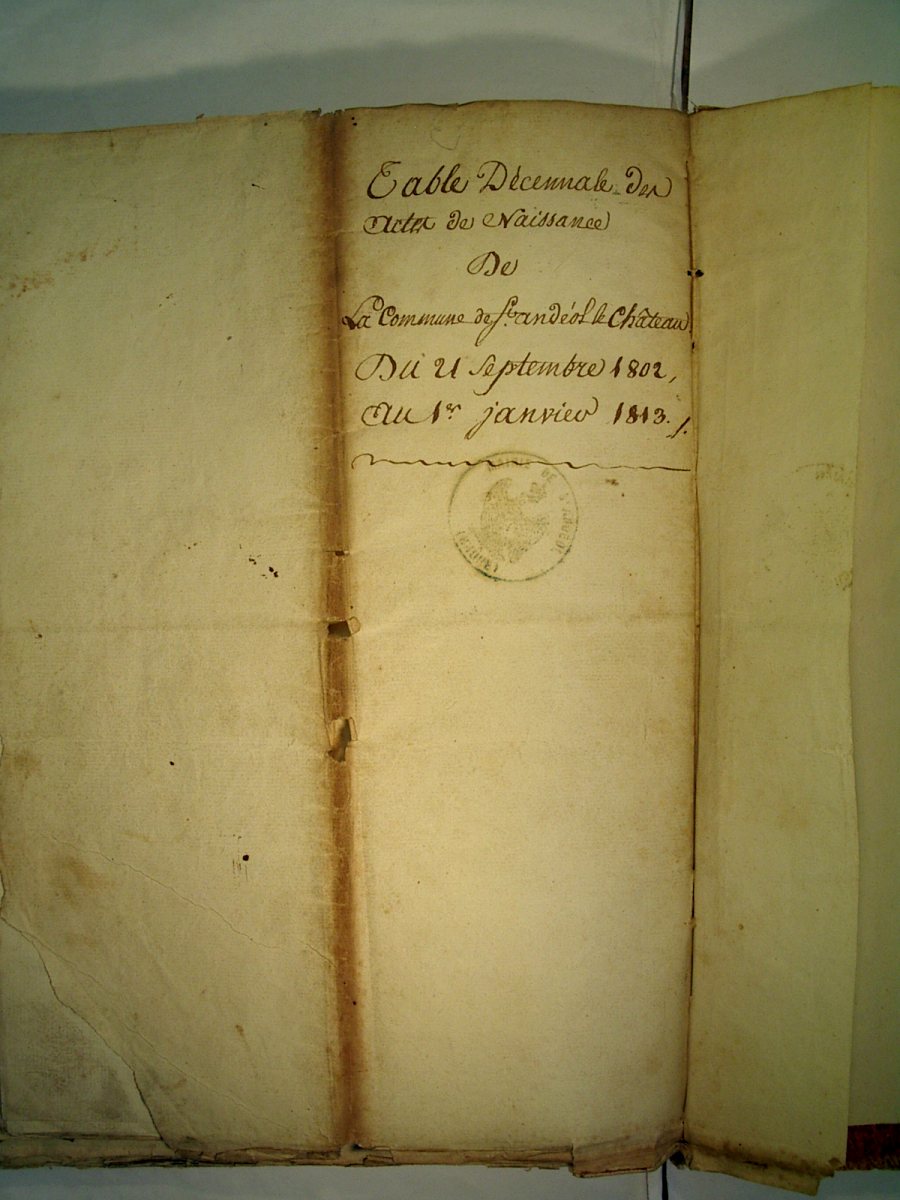 Table Décennale des
Actes de Naissance
De
La Commune de St. andéol le Château
Du 21 Septembre 1802,
Au 1er janvier 1813.